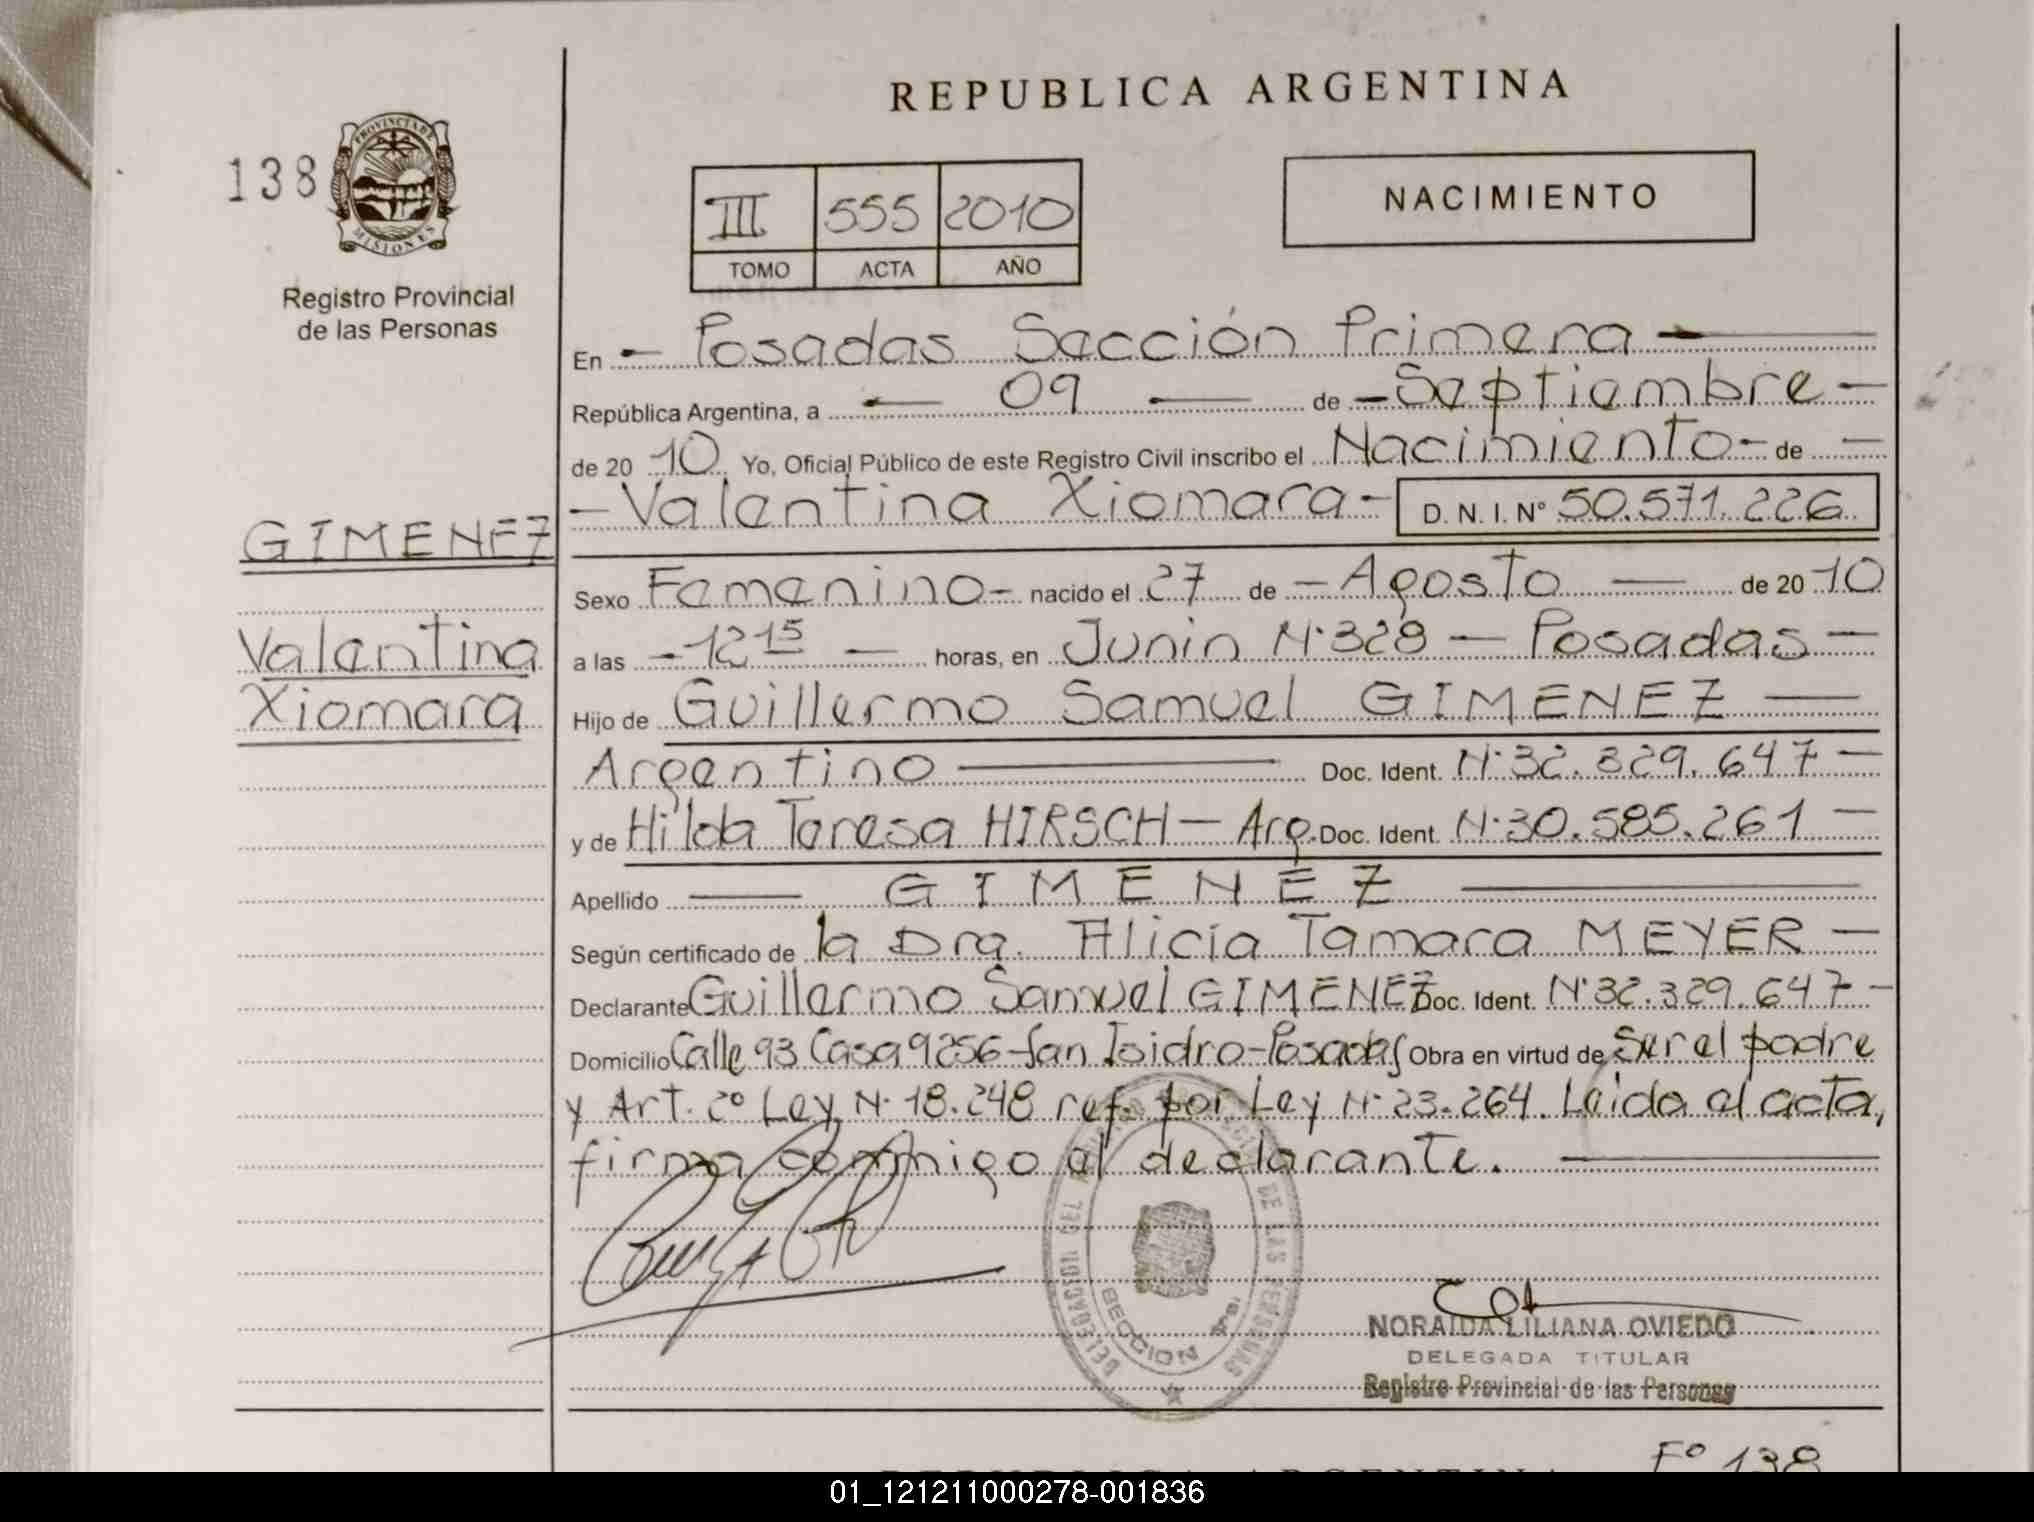 REPUBLICA ARGENTINA
138
PROVINCIA DE
MISIONES
Registro Provincial
de las Personas
III 555 2010
TOMO ACTA AÑO
NACIMIENTO
En - Posadas Sección Primera -
República Argentina, a - 09 - de - Septiembre -
de 20 10 Yo, Oficial Público de este Registro Civil inscribo el Nacimiento - de -
- Valentina Xiomara - D. N. I. Nº 50.571.226
GIMENEZ
Valentina
Xiomara
Sexo Femenino - nacido el 27 de - Agosto - de 20 10
a las - 12 15 - horas, en Junin N° 328 - Posadas -
Hijo de Guillermo Samuel GIMENEZ -
Argentino - Doc. Ident. N° 32.329.647 -
y de Hilda Teresa HIRSCH - Arg. Doc. Ident. N° 30.585.261 -
Apellido - GIMENEZ -
Según certificado de la Dra. Alicia Tamara MEYER -
Declarante Guillermo Samuel GIMENEZ Doc. Ident. N° 32.329.647 -
Domicilio Calle 93 Casa 9256 - San Isidro - Posadas Obra en virtud de Ser el padre
y Art. 2º Ley N° 18.248 ref. por Ley N° 23.264. Leida el acta,
firma conmigo el declarante. -
DE LAS PERSONAS
SECCION
NORAIDA LILIANA OVIEDO
DELEGADA TITULAR
Registro Provincial de las Personas
Fº 138
REPUBLICA ARGENTINA
01_121211000278-001836